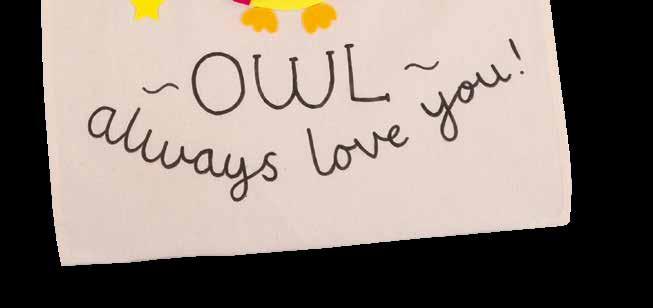 ~OWL~
always love you!